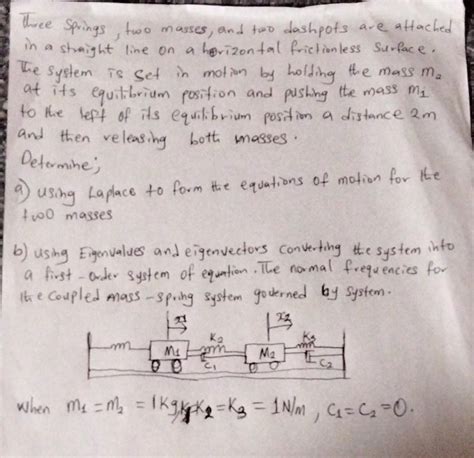 Three Springs, two masses, and two dashpots are attached
in a straight line on a horizontal frictionless surface.
The system is set in motion by holding the mass m₂
at its equilibrium position and pushing the mass m₁
to the left of its equilibrium position a distance 2m
and then releasing both masses.
Determine;
a) using Laplace to form the equations of motion for the
two masses
b) using Eigenvalues and eigenvectors converting the system into
a first-order system of equation. The normal frequencies for
the coupled mass-spring system governed by system.
x1 x2
K2 K3
M1 M2
C1 C2
when m₁ = m₂ = 1kg, K₂ = K₃ = 1N/m, C₁ = C₂ = 0.